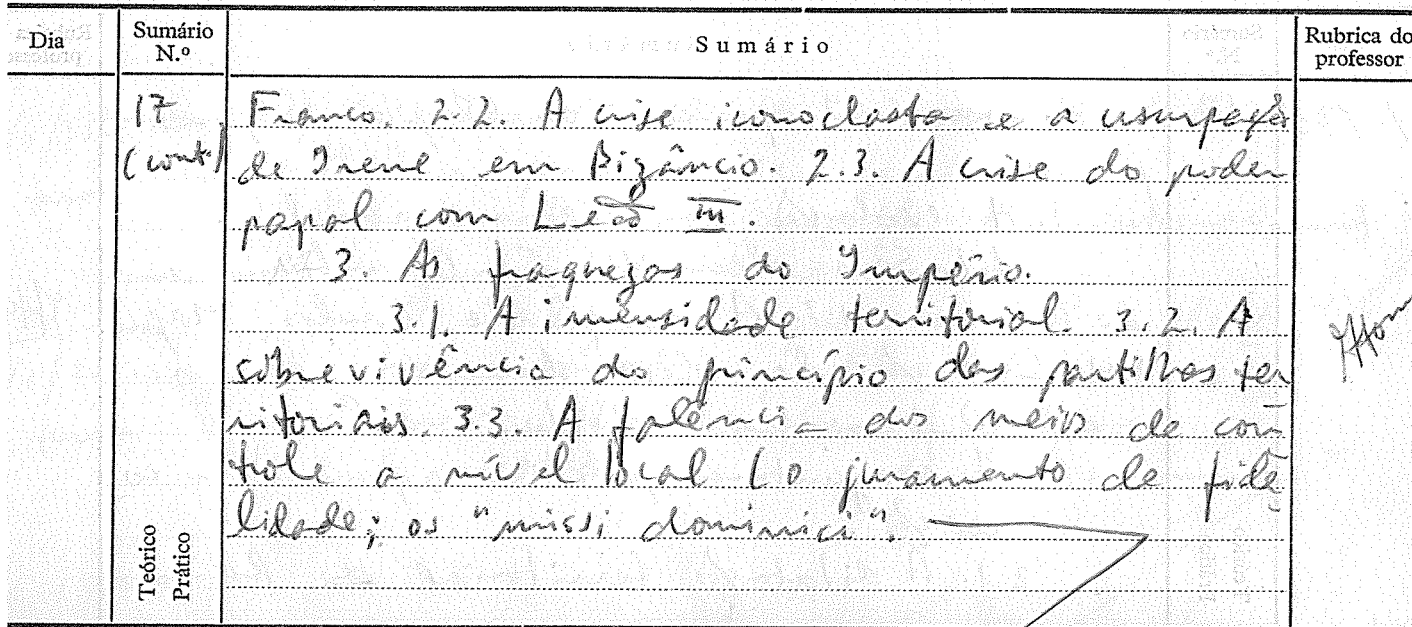 Dia Sumário N.º Sumário Rubrica do professor
17 Franco. 2.2. A crise iconoclasta e a usurpação
(cont.) de Irene em Bizâncio. 2.3. A crise do poder
papal com Leão III.
3. As fraquezas do Império.
3.1. A imensidade territorial. 3.2. A
sobrevivência do princípio das partilhas ter
ritoriais. 3.3. A falência dos meios de con
trole a nível local (o juramento de fide
lidade; os "missi dominici".
Teórico
Prático